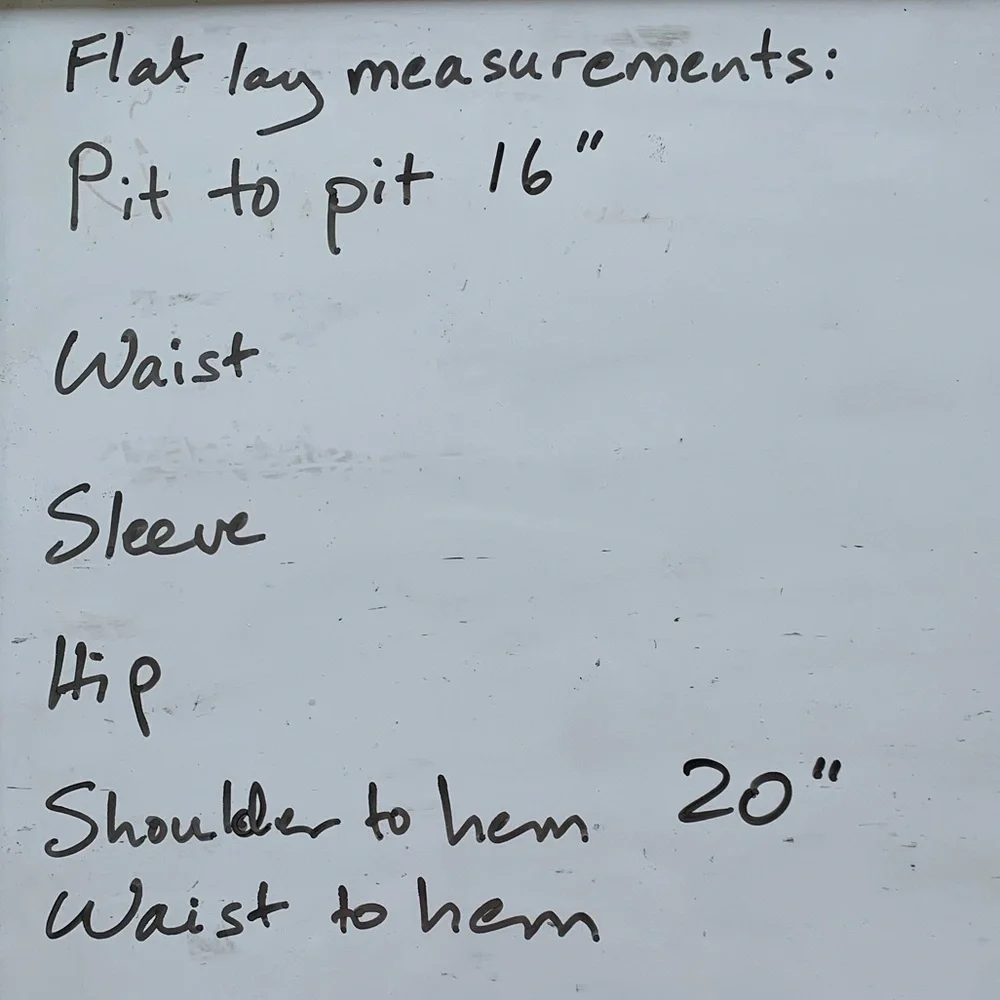 Flat lay measurements:
Pit to pit 16"
Waist
Sleeve
Hip
Shoulder to hem 20"
Waist to hem